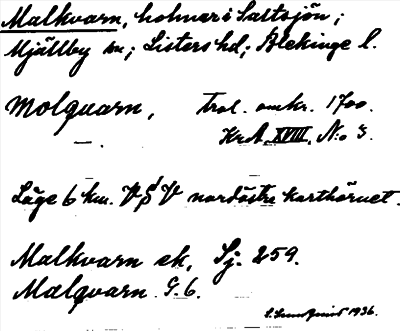 Malkvarn, holmar i Saltsjön;
Mjällby sn; Listers hd; Blekinge l.
Molquarn, trol. omkr. 1700.
— . KrA. XVIII. N:o 3.
Läge 6 km. V S V nordöstra karthörnet.
Malkvarn ek. Sj. 259.
Malqvarn G. 6.
1936.